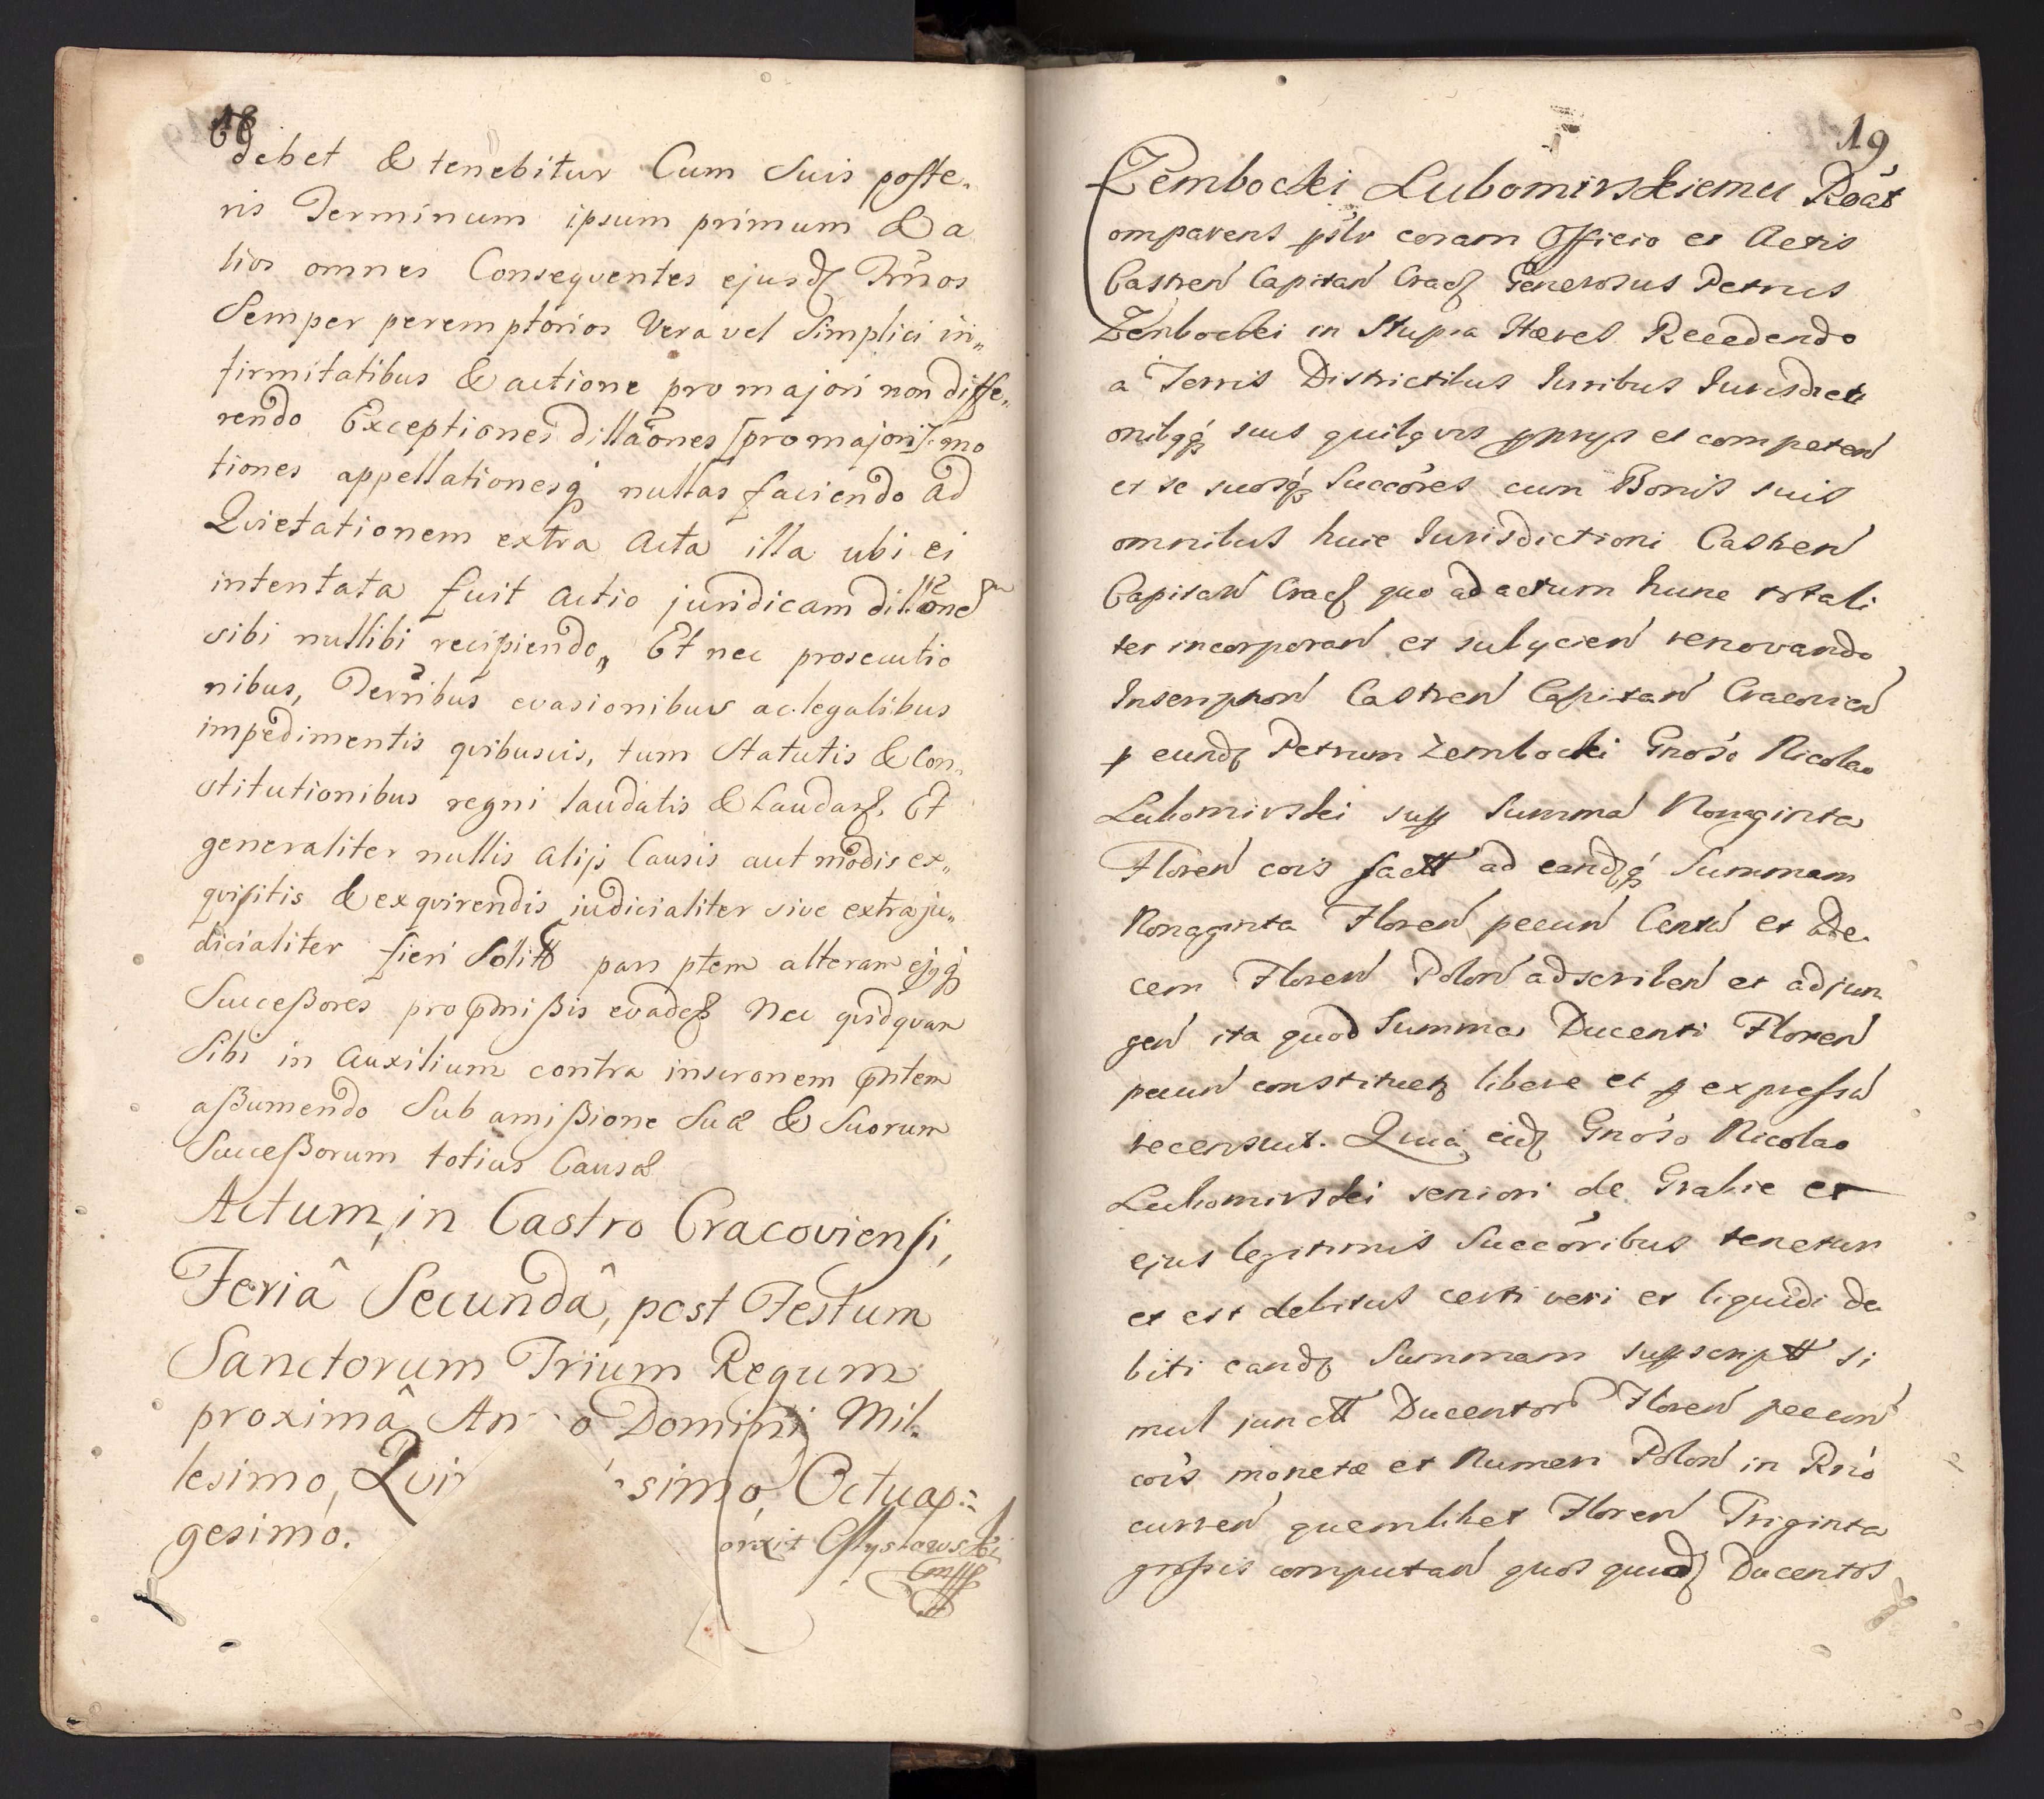 18
debet & tenebitur Cum Suis poste„
ris Terminum ipsum primum & a
lios omnes Conseqventes ejusd Trnos
Semper peremptorios Vera vel Simplici in„
firmitatibus & actione pro majori non diffe„
rendo Exceptiones dillãones [pro majori] mo
tiones appellationesq nullas faciendo ad
Qvietationem extra Acta illa ubi ei
intentata fuit actio juridicam dillõne
sibi nullibi recipiendo„ Et nec prosecutio
nibus, Terñibus evasionibus ac legalibus
impedimentis qvibusvis, tum Statutis & Con„
stitutionibus regni laudatis & Laudaz. Et
generaliter nullis alijs Causis aut modis ex„
qvisitis & exqvirendis iudicialiter sive extraju„
dicialiter fieri Solitt pars ptem alteram ejqq
Succeßores pro pmißis evadez Nec qvidqvam
Sibi in Auxilium contra inscronem pñtem
aßumendo Sub amißione Suæ & Suorum
Succeßorum totius Causæ
Actum, in Castro Cracoviensi,
Feriâ Secundâ, post Festum
Sanctorum Trium Regum
proximâ An o Domini Mil„
lesimo, Qvi simo, Octuag„
gesimo.
19
Zembocki Lubomirskiemu Roãt
omparens psılr coram Officio et Actis
Castren Capitan Crac Generosus Petrus
Zembocki in Słupia Hæres Recedendo
a Terris Districtibus Iuribus Iurisdicti
onibqq suis quibqvis pprys et competen
et se suosq Succóres cum Bonis suis
omnibus huic Iurisdictioni Castren
Capitan Crac quo ad actum hunc totali
ter incorporan et subycien renovando
Inscripton Castren Capitan Cracovien
p eund Petrum Zembocki Gnóso Nicolao
Lubomirski sup Summa Nonaginta
Floren cois factt ad eandq Summam
Nonaginta Floren pecun Centu et De„
cem Floren Polon adscriben et adjun
gen ita quod Summa Ducenti Floren
pecun constituet libere et p expressu
recensuit. Quia eid Gnóso Nicolao
Lubomirski seniori de Grabie et
ejus legitimis Succóribus tenetur
et est debitus certi veri et liquidi de
biti eand Summam supscriptt si
mul junctt Ducentor Floren pecun
cois monetæ et Numeri Polon in Rno
curren quemlibet Floren Triginta
grossis computan quos quid Ducentos